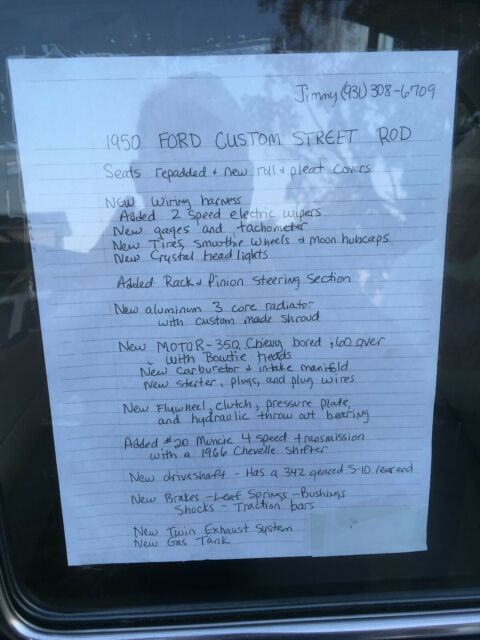 Jimmy (931) 308-6709
1950 FORD CUSTOM STREET ROD
Seats repadded + new roll + pleat covers
NEW Wiring harness
Added 2 speed electric wipers
New gages and tachometer
New Tires, Smoothie Wheels + Moon hubcaps
New Crystal head lights
Added Rack + Pinion Steering Section
New aluminum 3 core radiator
with custom made shroud
New MOTOR - 350 Chevy bored .60 over
with Bowtie heads
New Carburetor + intake manifold
New starter, plugs, and plug wires
New Flywheel, clutch, pressure plate,
and hydraulic throw out bearing
Added #20 Muncie 4 speed transmission
with a 1966 Chevelle shifter
New driveshaft - Has a 342 geared S-10 rear end
New Brakes - Leaf Springs - Bushings
Shocks - Traction bars
New Twin Exhaust System
New Gas Tank